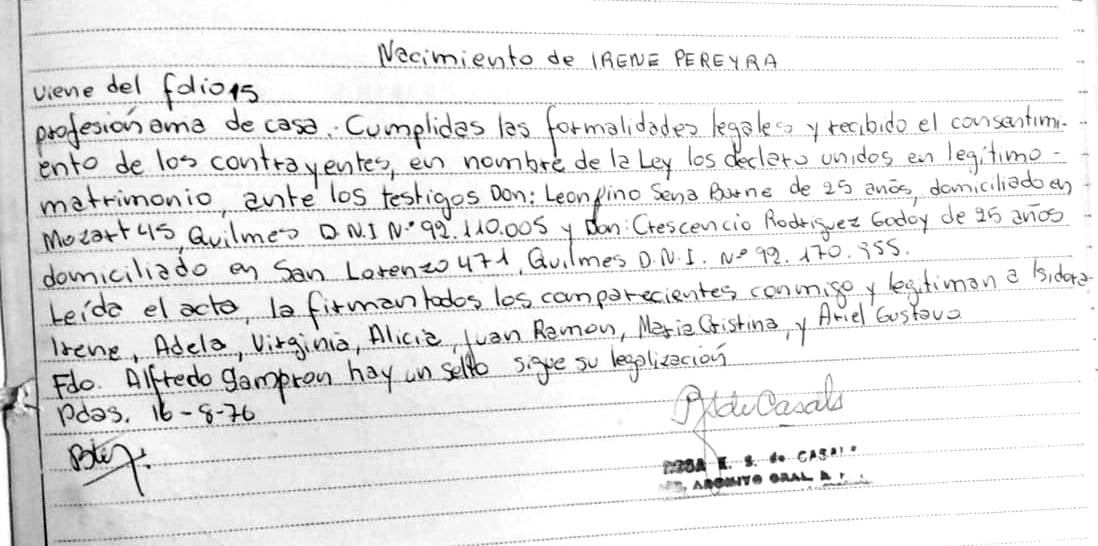 Nacimiento de IRENE PEREYRA
viene del folio 15
profesión ama de casa. Cumplidas las formalidades legales y recibido el consentimi-
ento de los contrayentes, en nombre de la Ley los declaro unidos en legítimo
matrimonio, ante los testigos Don: Leonfino Sena Burne de 25 años, domiciliado en
Mozart 45, Quilmes D.N.I Nº 92.110.005 y Don: Crescencio Rodriguez Godoy de 25 años
domiciliado en San Lorenzo 471, Quilmes D.N.I. Nº 92.170.355.
Leída el acto, la firman todos los comparecientes conmigo y legitiman a Isidora
Irene, Adela, Virginia, Alicia, Juan Ramon, Maria Cristina, y Ariel Gustavo
Fdo. Alfredo Gampron hay un sello sigue su legalización
Pdas. 16-8-76
de Casals
ROSA E. S. de CASALS
ARCHIVO GRAL